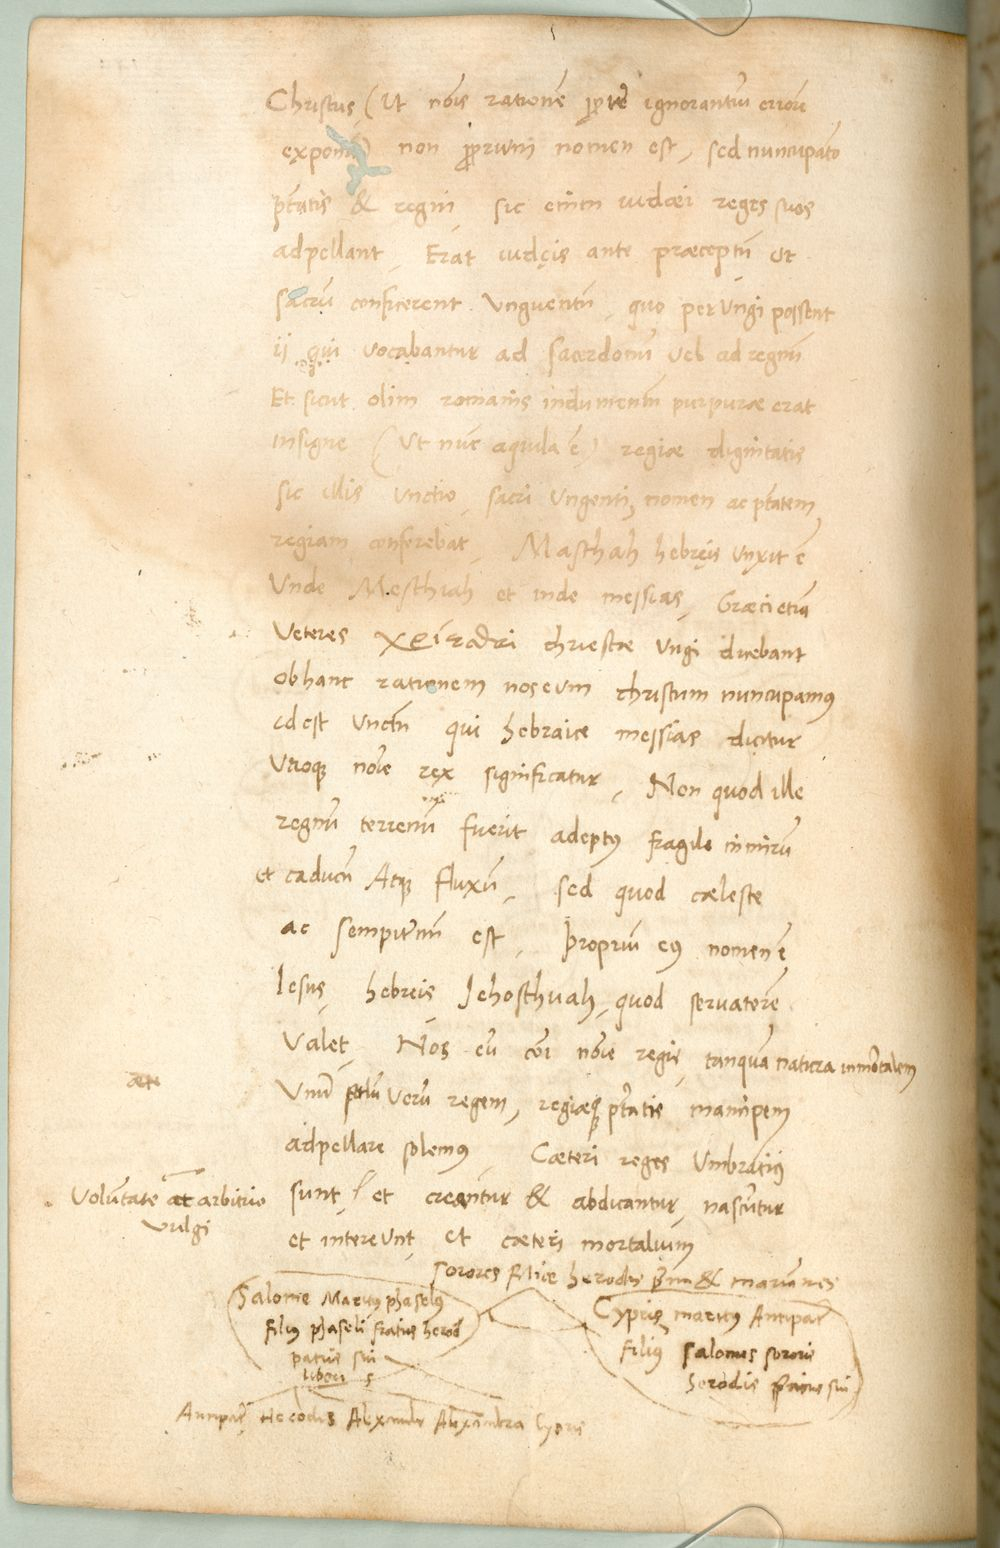 Christus (Ut nōis rationē ꝓpt̄ ignorantiū errorē
exponā) non ꝓprium nomen est, sed nuncupatō
p̄tatis & regni sic enim iudæi reges suos
adpellant, Erat iudęis ante præceptū ut
sacrū conficerent Unguentū, quo per Ungi possent
ij qui vocabantur ad sacerdotiū vel ad regnū
Et sicut olim romanis indumentū purpuræ erat
insigne (Ut nūc aquila ē) regiæ dignitatis
sic illis unctio sacri Ungenti, nomen ac p̄tatem
regiam conferebat, Maschah hebręis Unxit ē
Unde Meschiah et inde messias, Græci etiā
Veteres chriestæ Ungi dicebant
Ob hanc rationem nos eum christum nuncupamus
id est Unctū qui hebraice messias dicitur
Utroqꝫ nōie rex significatur, Non quod ille
regnū terrenū fuerit adeptꝰ fragile nimirū
et caducū Atqꝫ fluxū, sed quod cæleste
ac sempiternū est, Propriū eiꝰ nomen ē
Iesus, hebreis Jehoschuah, quod servatorē
Valet, Nos eū cū nōie regis, tanquā naticra inmortalem
ate
Unū Verū regem, regiæqꝫ p̄tatis manipem
adpellare solemꝰ, Cæteri reges Umbratiꝰ
sunt, et creantur & abdicantur, nascūtur
Volūtate at arbitrio
vulgi
et intereunt, et cæteri mortalium
sorores filiæ herodis & mariānes
Salome Maritꝰ phaselꝰ
filiꝰ phaseli fratris herod
patris sui
liberi s
Cypris, maritꝰ Antipatꝰ
filiꝰ Salomes sororis
herodis patris sui
Antipatꝰ Herodis Alexander Alexandra Cypris